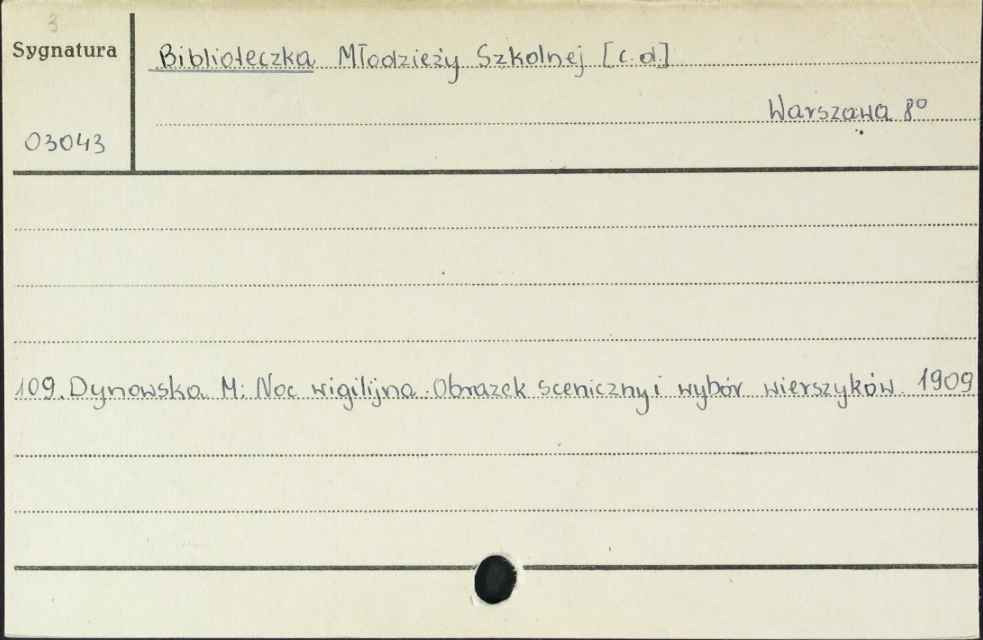 3
Sygnatura
Biblioteczka Młodzieży Szkolnej [c.d.]
Warszawa 8º
03043
109. Dynowska M: Noc wigilijna. Obrazek sceniczny i wybór wierszyków. 1909